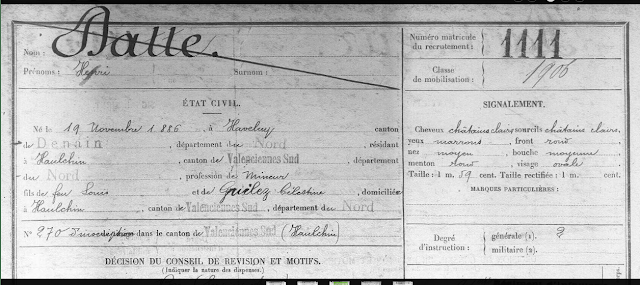 Nom : Dalle.
Prénoms : Henri Surnom :
ÉTAT CIVIL.
Né le 19 Novembre 1886, à Haveluy canton
de Denain, département du Nord, résidant
à Haulchin, canton de Valenciennes Sud, département
du Nord, profession de Mineur
fils de feu Louis et de Guélez Célestine, domiciliés
à Haulchin, canton de Valenciennes Sud, département du Nord
N° 270 d'inscription dans le canton de Valenciennes Sud (Haulchin)
DÉCISION DU CONSEIL DE REVISION ET MOTIFS.
(Indiquer la nature des dispenses.)
Numéro matricule du recrutement : 1111
Classe de mobilisation : 1906
SIGNALEMENT.
Cheveux châtains clairs sourcils châtains clairs,
yeux marrons front rond
nez moyen, bouche moyenne
menton rond, visage ovale
Taille : 1 m. 59 cent. Taille rectifiée : 1 m. cent.
MARQUES PARTICULIÈRES :
Degré d'instruction : générale (1). 2
militaire (2).